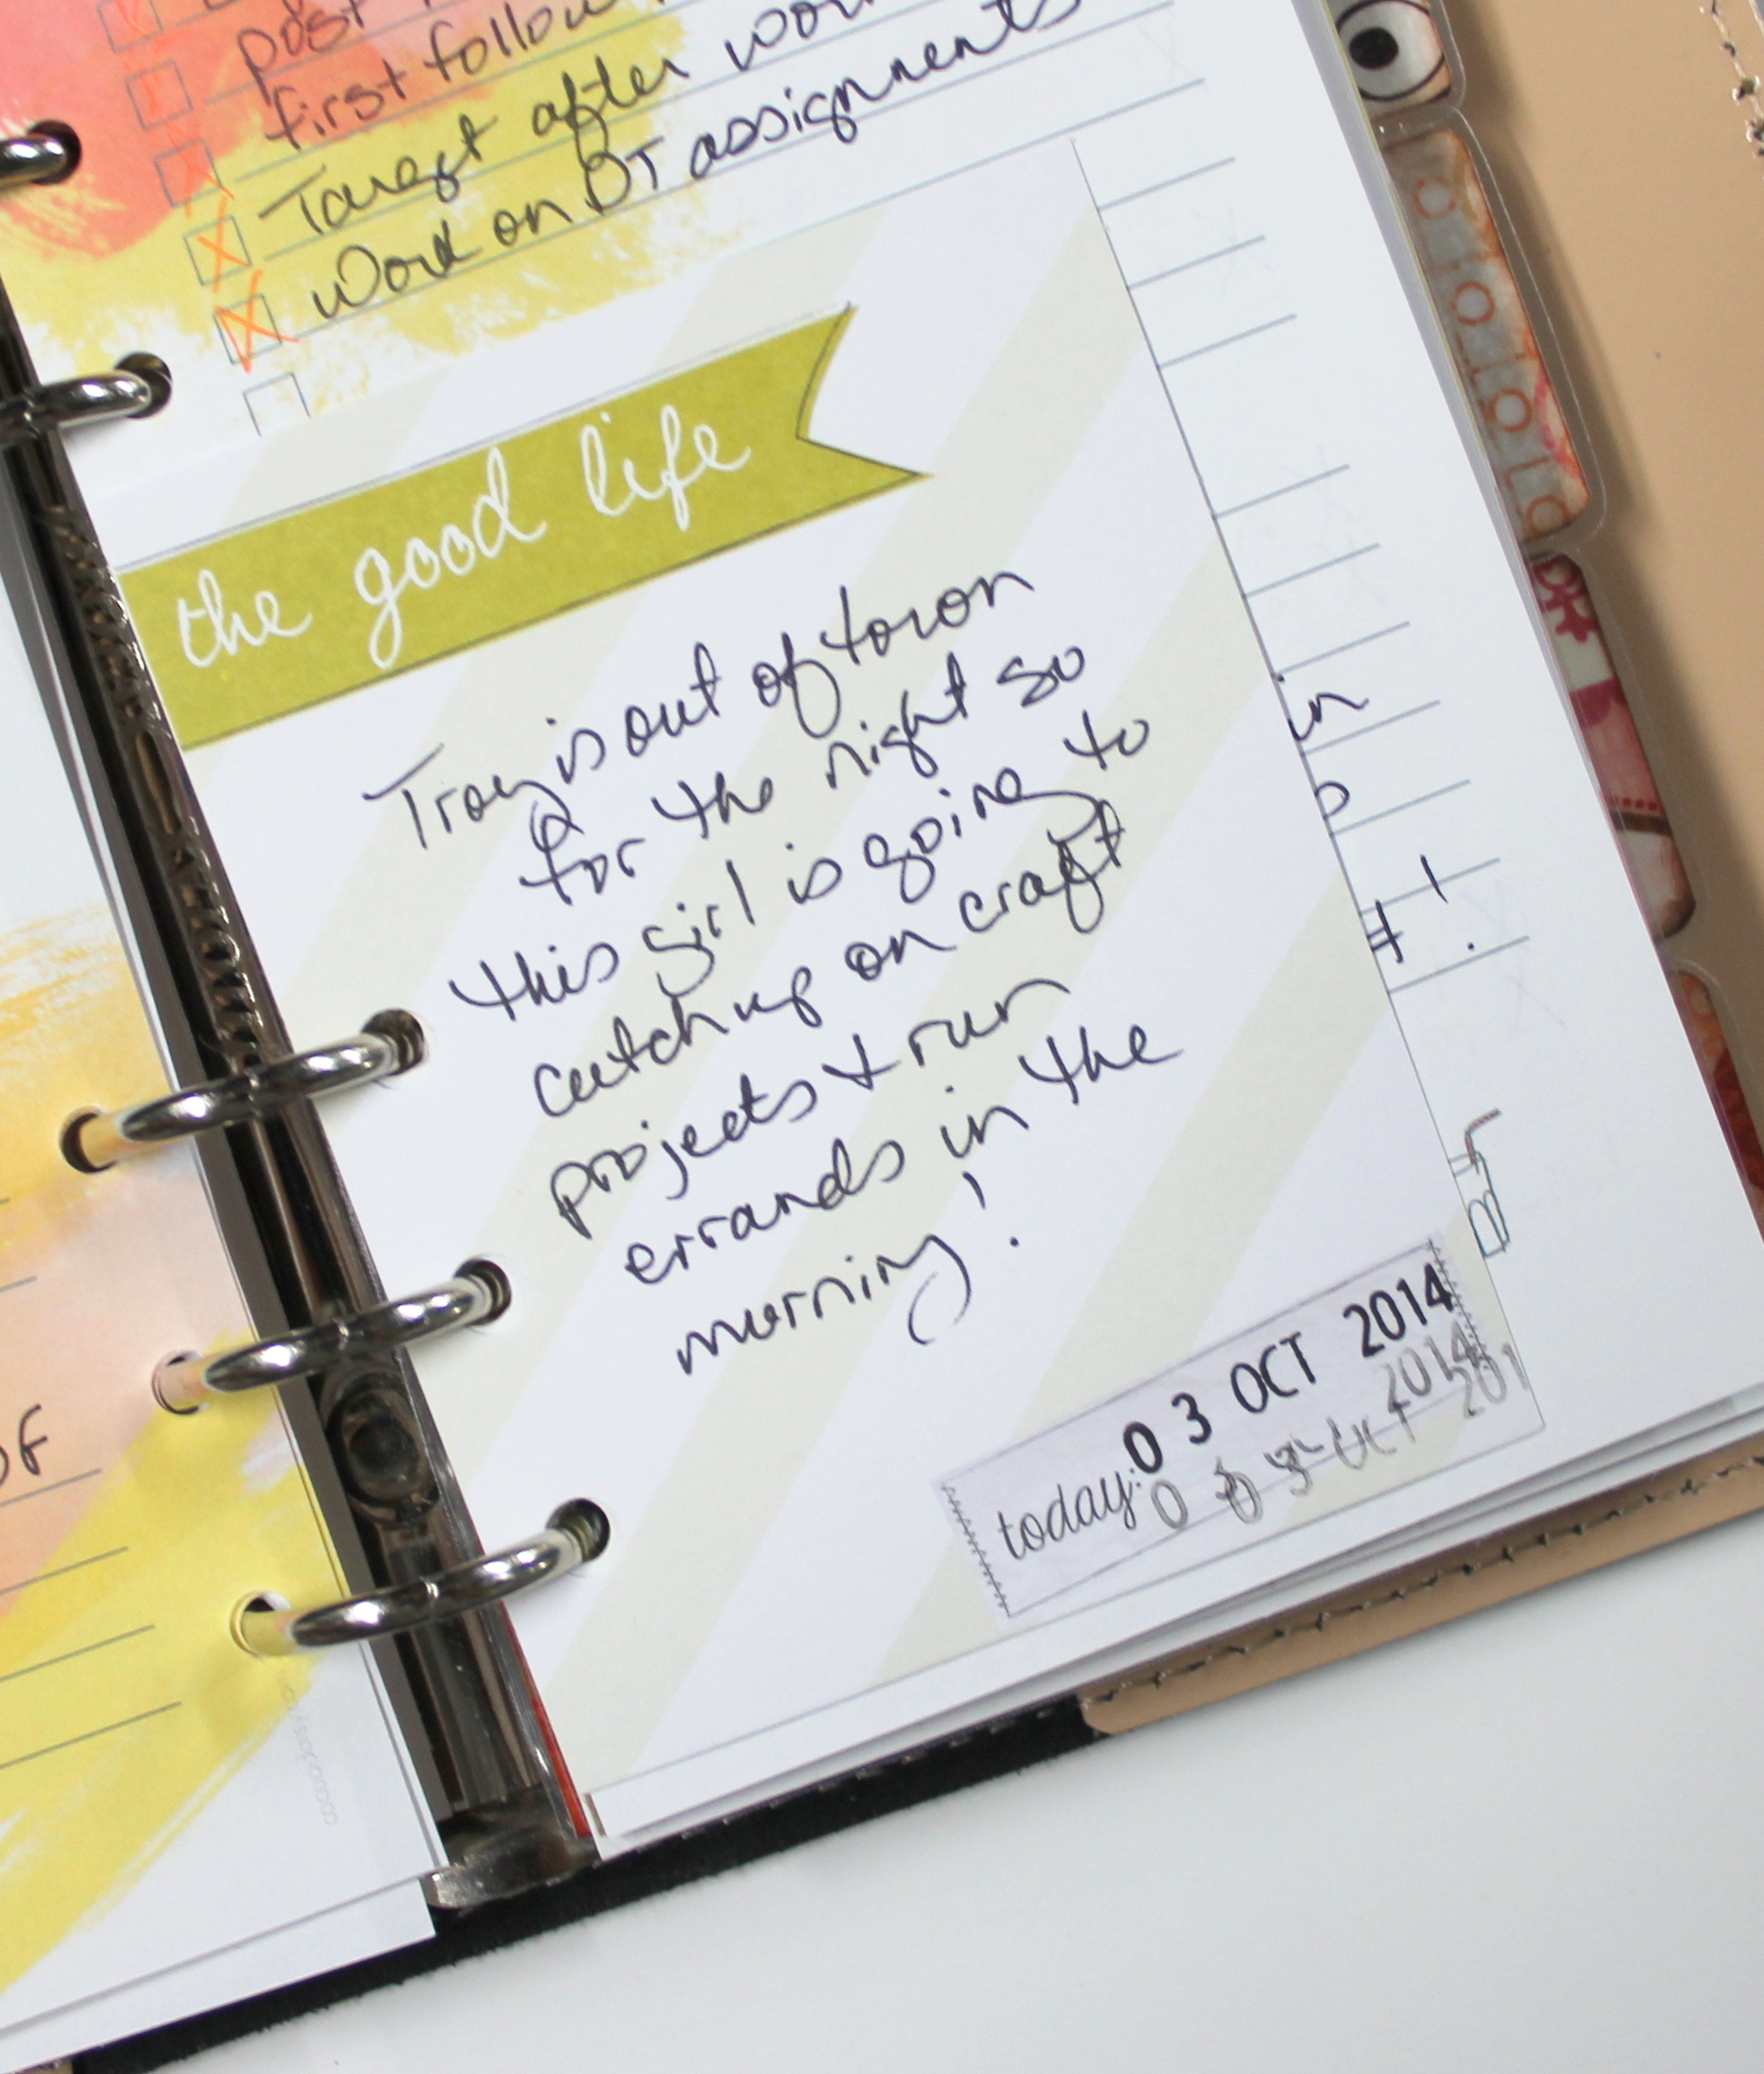 post
first follow
Target after wor
Work on DT assignments
the good life
Troy is out of town
for the night so
this girl is going to
catch up on craft
projects + run
errands in the
morning!
in
!
today: 03 OCT 2014
2014
201
OF